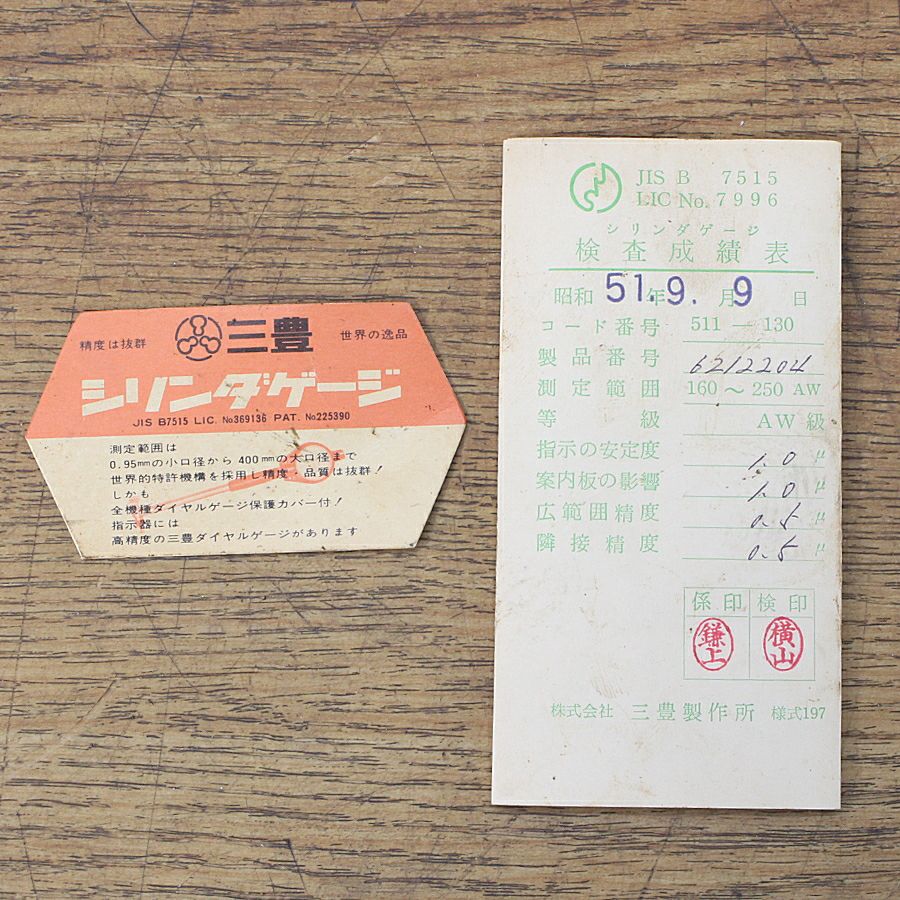 精度は抜群 三豊 世界の逸品
シリンダゲージ
JIS B7515 LIC. No369136 PAT. No225390
測定範囲は
0.95mmの小口径から 400mmの大口径まで
世界的特許機構を採用し精度・品質は抜群!
しかも
全機種ダイヤルゲージ保護カバー付!
指示器には
高精度の三豊ダイヤルゲージがあります
JIS B 7515
LIC No. 7996
シリンダゲージ
検査成績表
昭和 51年 9.月 9日
コード番号 511 — 130
製品番号 6212204
測定範囲 160～250 AW
等級 AW 級
指示の安定度 1.0 μ
案内板の影響 1.0 μ
広範囲精度 0.5 μ
隣接精度 0.5 μ
係印 検印
鎌上 横山
株式会社 三豊製作所 様式197